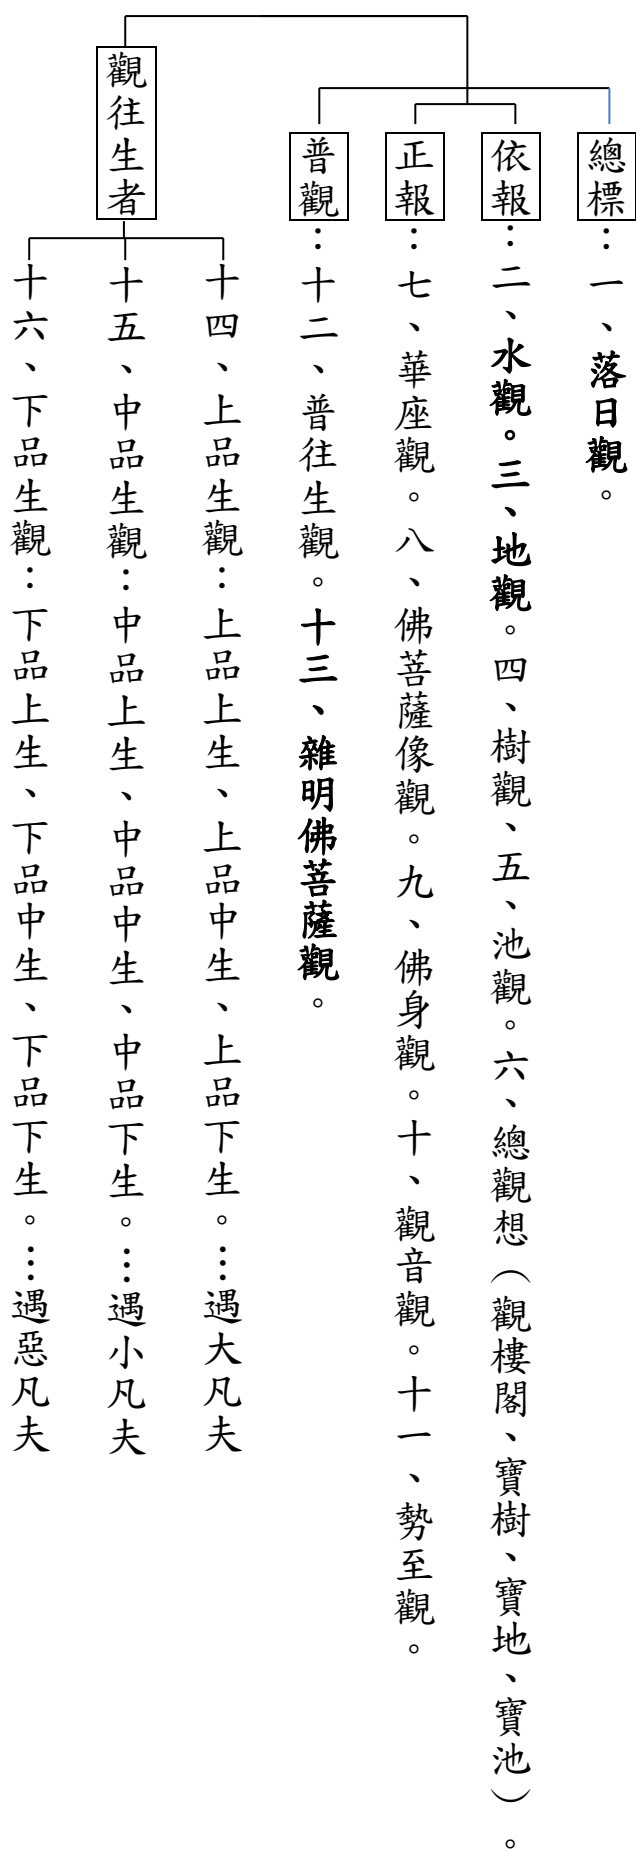 總標：一、落日觀。
依報：二、水觀。三、地觀。四、樹觀、五、池觀。六、總觀想（觀樓閣、寶樹、寶地、寶池）。
正報：七、華座觀。八、佛菩薩像觀。九、佛身觀。十、觀音觀。十一、勢至觀。
普觀：十二、普往生觀。十三、雜明佛菩薩觀。
觀往生者
十四、上品生觀：上品上生、上品中生、上品下生。…遇大凡夫
十五、中品生觀：中品上生、中品中生、中品下生。…遇小凡夫
十六、下品生觀：下品上生、下品中生、下品下生。…遇惡凡夫